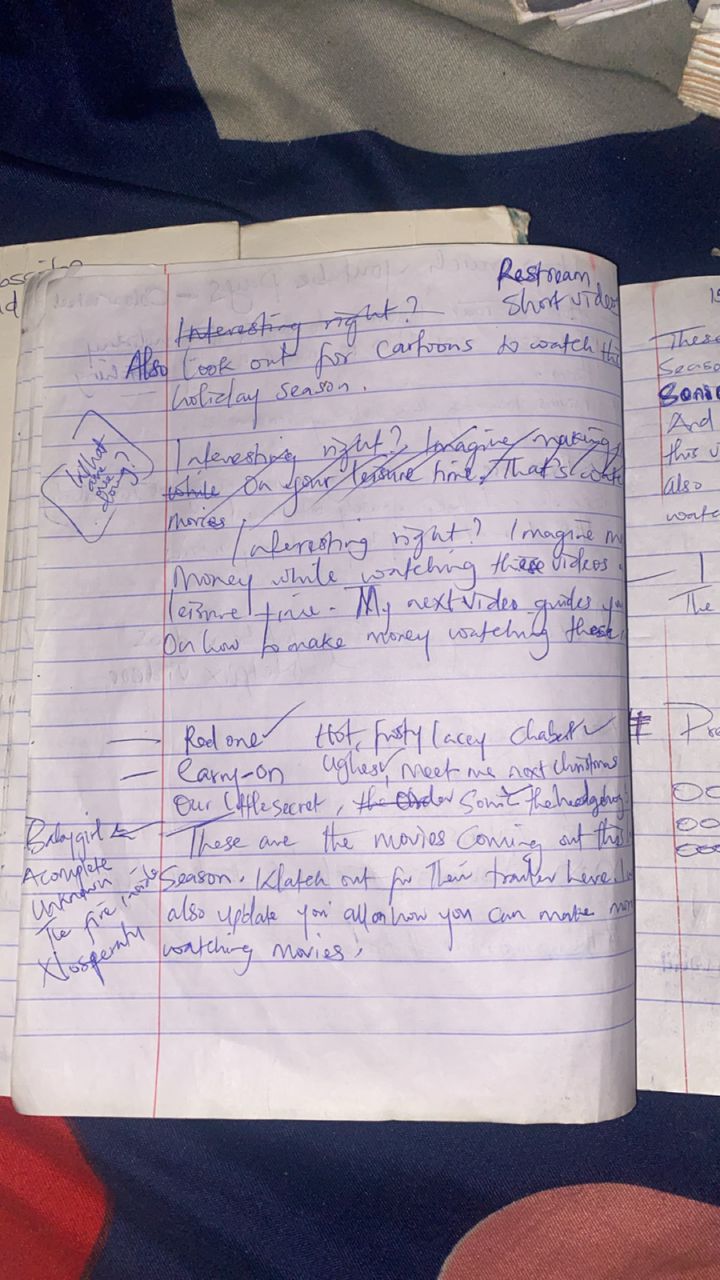 Restream
Short video
Interesting right?
Also look out for cartoons to watch this
holiday season.
What are we doing?
Interesting right? Imagine making
while On your leisure time. That's
movies
Interesting right? Imagine
Money while watching these videos
leisure time. My next video guides
On how to make money watching these
Red one Hot, frosty Lacey Chabert
Carry-on Meet me next Christmas
Our little secret, the Order Sonic the hedgehog
Babygirl These are the movies Coming out this
A complete Season. Watch out for Their trailer here.
Unknown
The fire inside also update you all on how you can make
watching movies!
15
These
Seaso
Sonic
And
this v
also
watc
1
The
# Pr